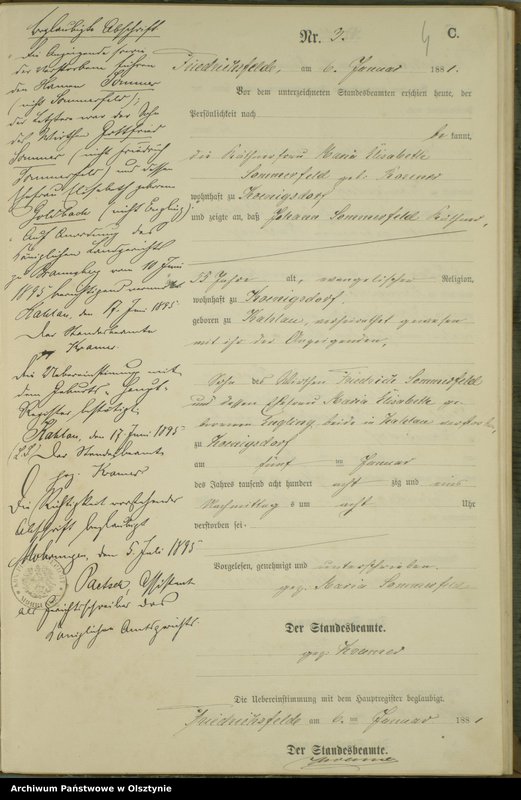 Beglaubigte Abschrift
Die Anzeigende sowie
der Verstorbene führen
den Namen Sommer
(nicht Sommerfeld);
der Letztere war der Sohn
des Wirthen Gottfried
Sommer (nicht Friedrich
Sommerfeld) und dessen
Ehefrau Elisabeth geborene
Goldbach (nicht Engling).
Auf Anordnung des
Königlichen Landgerichts
zu Braunsberg vom 10 Juni
1895 berichtigend vermerkt
Kahlau, den 17. Juni 1895
Der Standesbeamte
Kramer
Die Uebereinstimmung mit
dem Geburts- Haupt-
Register bestätigt
Kahlau, den 17 Juni 1895
(L.S.) Der Standesbeamte
gez. Kramer
Die Richtigkeit vorstehender
Abschrift beglaubigt
Mohrungen, den 5 Juli 1895
Paetsch, Assistent
als Gerichtsschreiber des
Königlichen Amtsgerichts.
Nr. 2.
4
C.
Friedrichsfelde, am 6. Januar 1881.
Vor dem unterzeichneten Standesbeamten erschien heute, der
Persönlichkeit nach
be kannt,
die Käthnerfrau Maria Elisabeth
Sommerfeld geb.
wohnhaft zu Koenigsdorf
und zeigte an, daß Johann Sommerfeld Käthner,
55 Jahre alt, evangelischer Religion,
wohnhaft zu Koenigsdorf
geboren zu Kahlau, verheirathet gewesen
mit der Anzeigenden,
Sohn des Wirthen Friedrich Sommerfeld
und dessen Ehefrau Maria Elisabeth ge-
borenen Engling, beide in Kahlau verstorben,
zu Koenigsdorf
am fünf ten Januar
des Jahres tausend acht hundert acht zig und eins
Nachmittag s um acht Uhr
verstorben sei.
Vorgelesen, genehmigt und unterschrieben
gez. Maria Sommerfeld
Der Standesbeamte.
gez. Kramer
Die Uebereinstimmung mit dem Hauptregister beglaubigt.
Friedrichsfelde am 6. ten Januar 1881
Der Standesbeamte.
Kramer
Archiwum Państwowe w Olsztynie